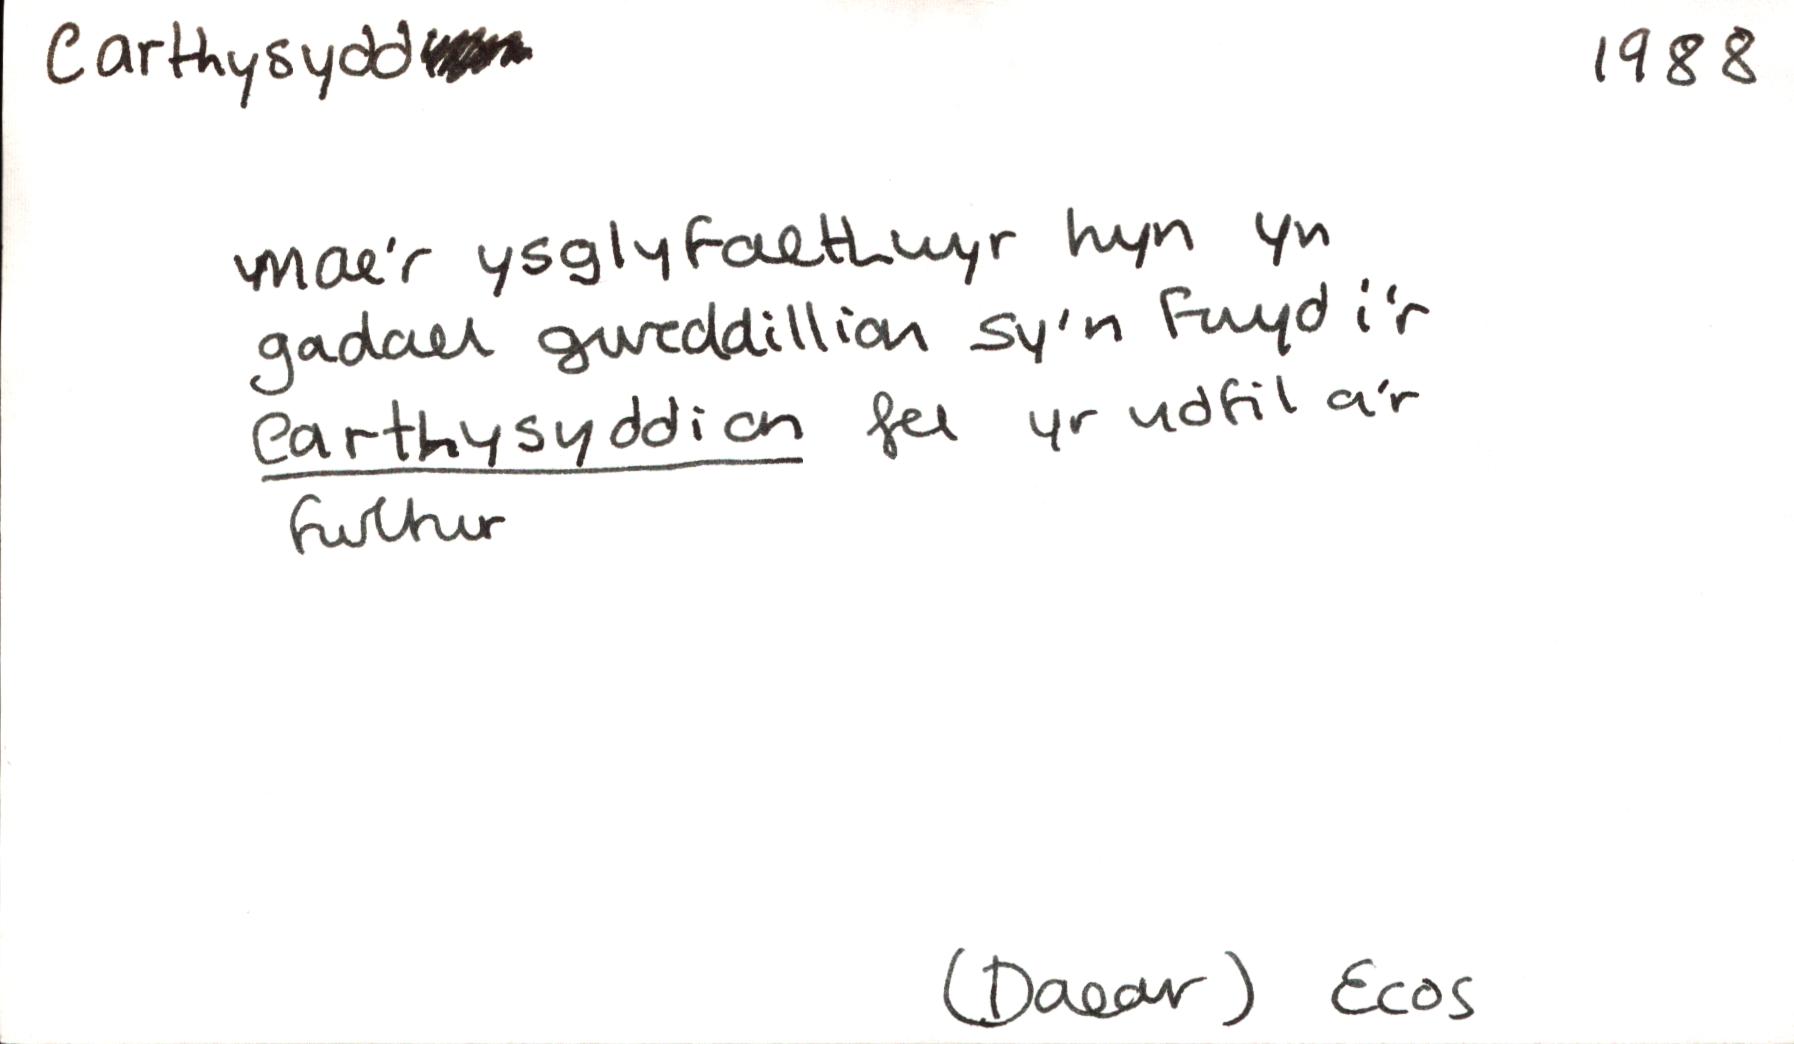 Carthysydd
1988
mae'r ysglyfaethwyr hyn yn
gadael gweddillion sy'n fwyd i'r
Carthysyddion fel yr udfil a'r
fwltur
(Daear) Ecos